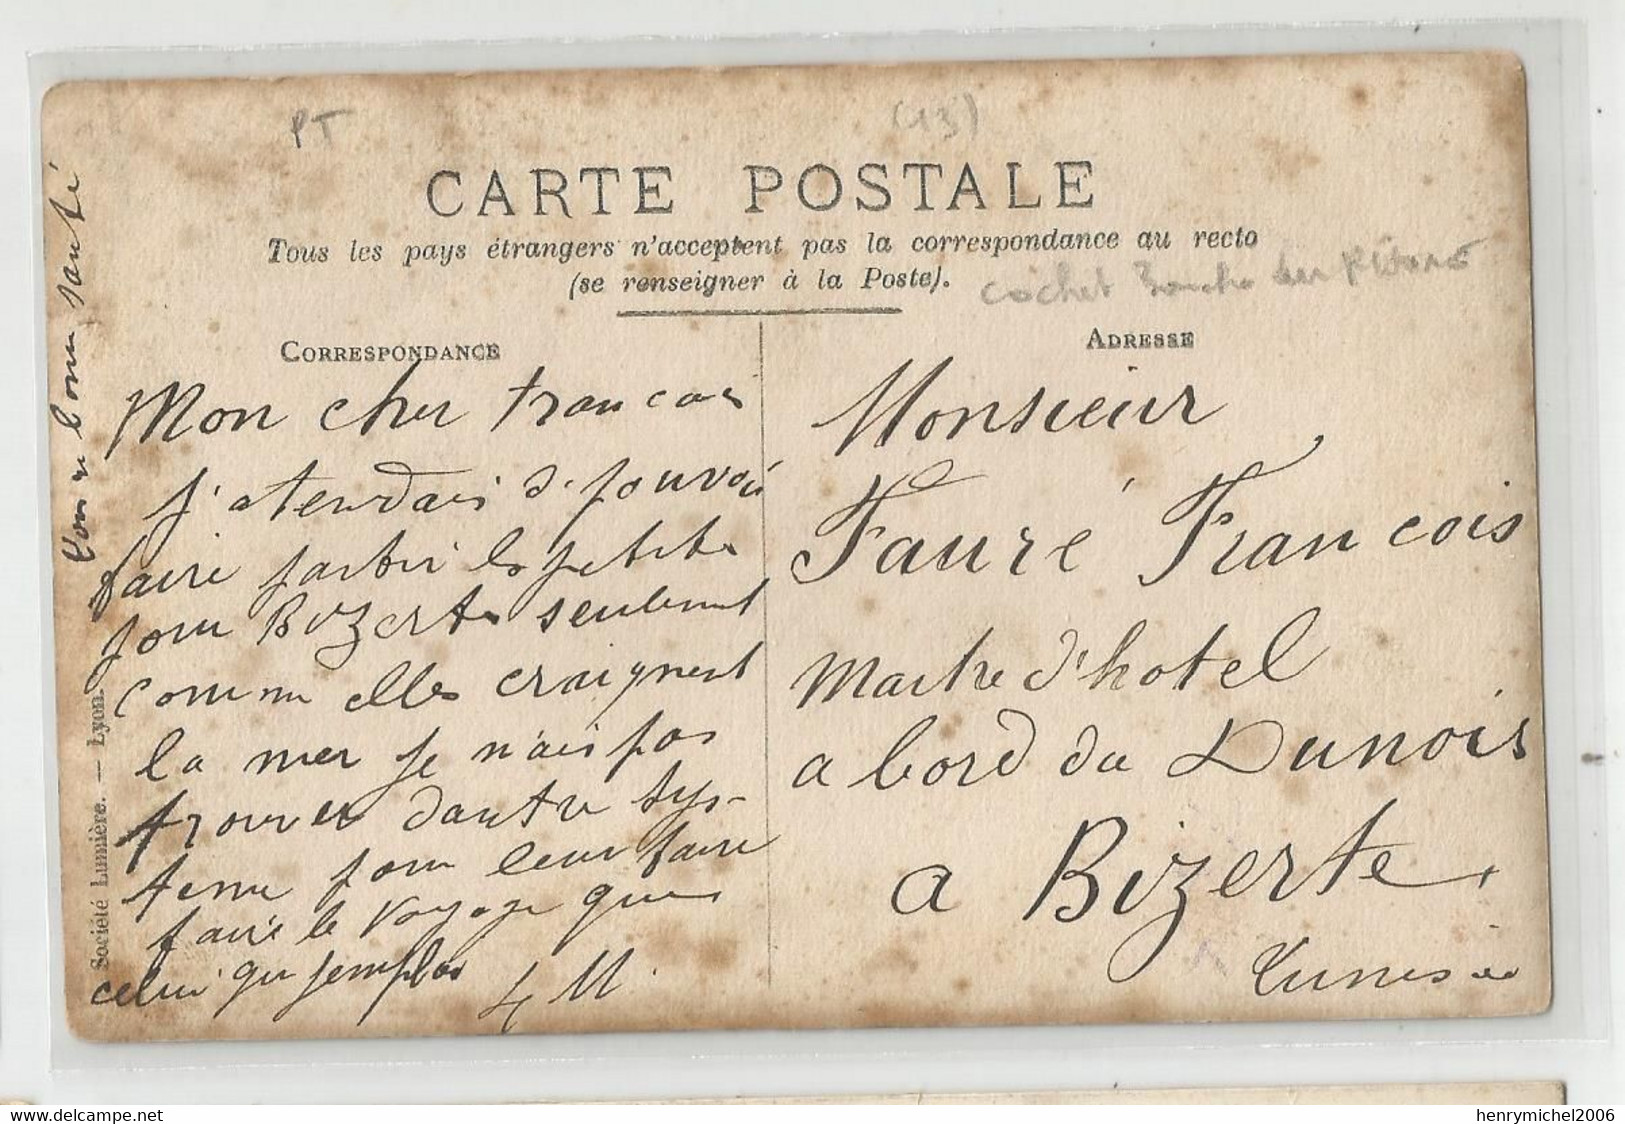 PT
(13)
CARTE POSTALE
Tous les pays étrangers n'acceptent pas la correspondance au recto
(se renseigner à la Poste).
cachet Bouche du Rhone
CORRESPONDANCE
Mon cher Francois
j'atendais d. pouvoir
faire partir les petites
pour Bizerte seulement
comme elles craignent
la mer je n'ais pas
trouver d'autre sys-
teme pour leur faire
faire le voyage que
celui qu j'emploi
bonne santé
ADRESSE
Monsieur
Fauré Francois
Maitre d'hotel
a bord du Dunois
a Bizerte
Tunisie
Société Lumière. — Lyon.
henrymichel2006